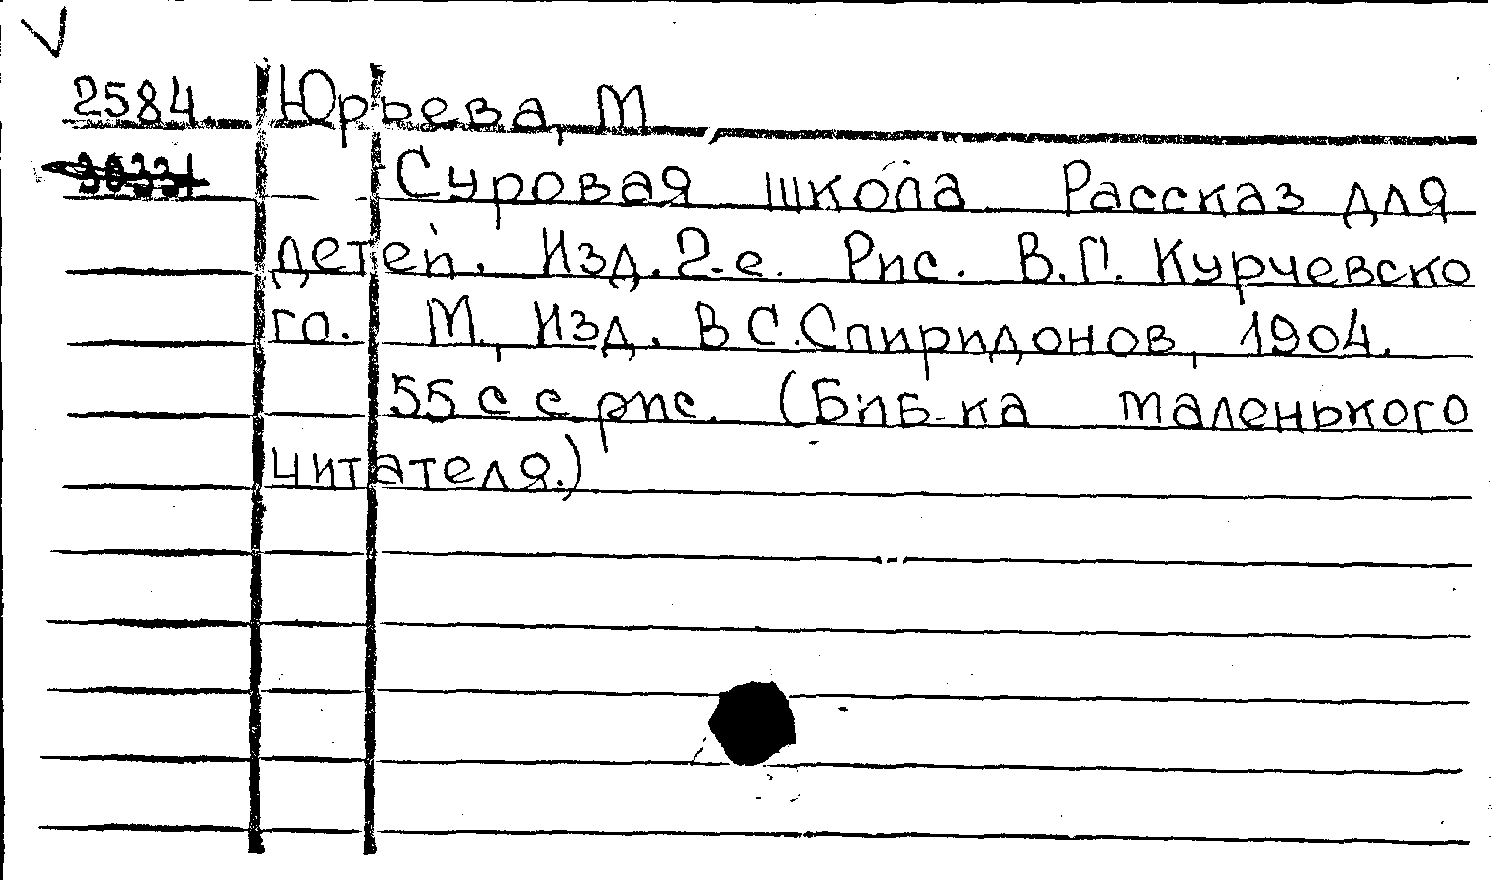 2584. Юрьева, М
Суровая школа Рассказ для
детей. Изд. 2-е. Рис. В.Г. Курчевско
го. М., Изд. В С. Спиридонов, 1904.
55 с с рис. (Биб-ка маленького
читателя.)